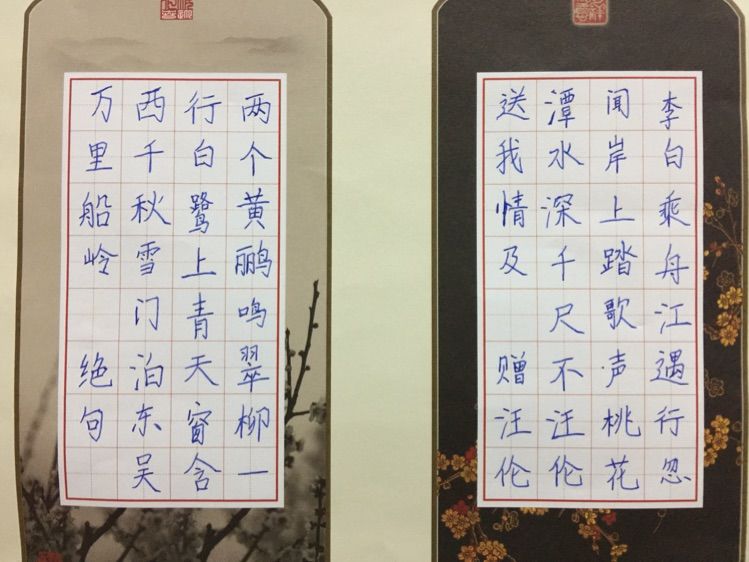 李白乘舟江遇行忽
闻岸上踏歌声桃花
潭水深千尺不汪伦
送我情及 赠汪伦
两个黄鹂鸣翠柳一
行白鹭上青天窗含
西千秋雪门泊东吴
万里船岭 绝句